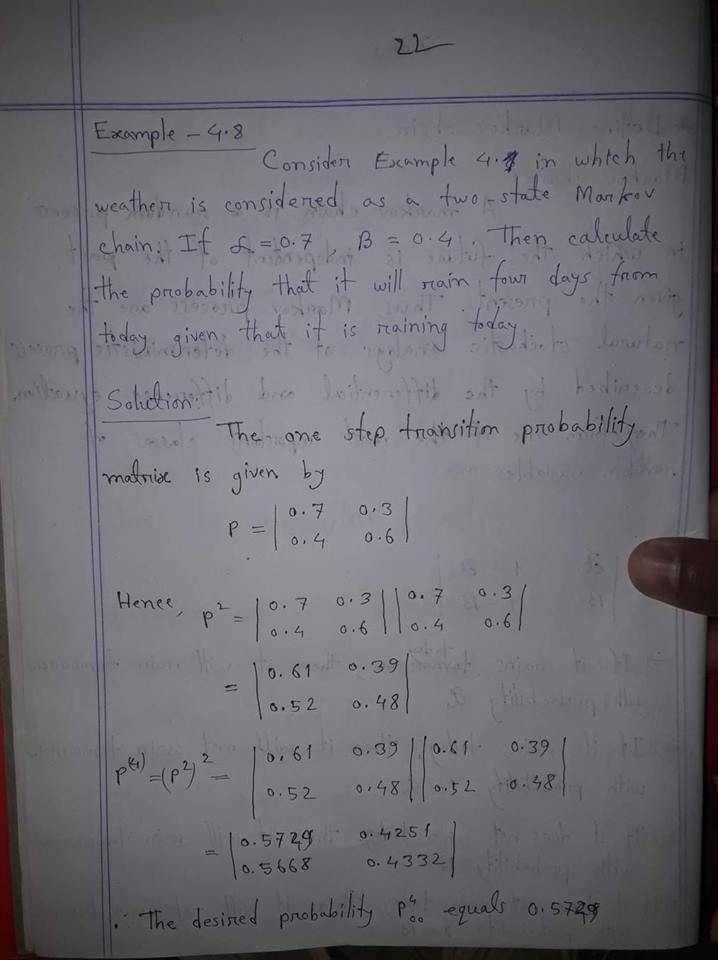 22
Example - 4.8
Consider Example 4.1 in which the
weather is considered as a two-state Markov
chain. If α = 0.7 β = 0.4. Then calculate
the probability that it will rain four days from
today given that it is raining today
Solution:
The one step transition probability
matrix is given by
P = | 0.7 0.3 |
| 0.4 0.6 |
Hence, P² = | 0.7 0.3 | | 0.7 0.3 |
| 0.4 0.6 | | 0.4 0.6 |
= | 0.61 0.39 |
| 0.52 0.48 |
P⁽⁴⁾ = (P²)² = | 0.61 0.39 | | 0.61 0.39 |
| 0.52 0.48 | | 0.52 0.48 |
= | 0.5749 0.4251 |
| 0.5668 0.4332 |
∴ The desired probability P⁴₀₀ equals 0.5749